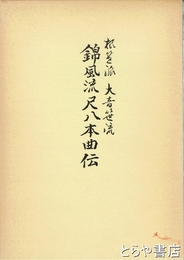 根笹派 大音笹流
錦風流尺八本曲伝
古本
とらや書店